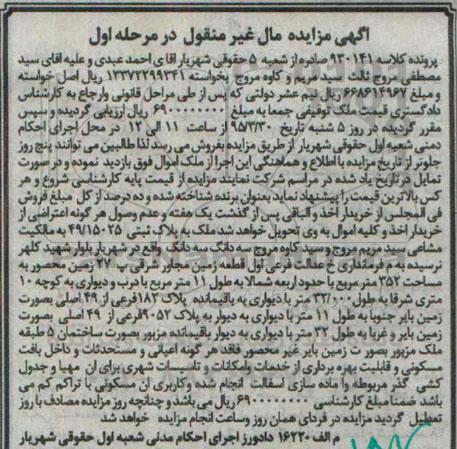 آگهی مزایده مال غیر منقول در مرحله اول
پرونده کلاسه ۹۳۰۱۴۱ صادره از شعبه ۵ حقوقی شهریار آقای احمد عبدی و علیه آقای سید
مصطفی مروج ثالث سید مریم و کاوه مروج بخواسته ۱۳۳۷۲۲۹۹۳۴۱ ریال اصل خواسته
و مبلغ ۶۶۸۶۱۴۹۶۷ ریال نیم عشر دولتی که پس از طی مراحل قانونی وارجاع به کارشناس
دادگستری قیمت ملک توقیفی جمعا به مبلغ ۶۹۰۰۰۰۰۰۰۰۰ ریال ارزیابی گردیده و سپس
مقرر گردیده در روز ۵ شنبه تاریخ ۹۵/۳/۳۰ از ساعت ۱۱ الی ۱۲ در محل اجرای احکام
دمنی شعبه اول حقوقی شهریار از طریق مزایده بفروش می رسد لذا طالبین می توانند پنج روز
جلوتر از تاریخ مزایده با اطلاع و هماهنگی این اجرا از ملک اموال فوق بازدید نموده و در صورت
تمایل در تاریخ یاد شده در مراسم شرکت نمایند مزایده از قیمت پایه کارشناسی شروع و هر
کس بالاترین قیمت را پیشنهاد نماید بعنوان برنده شناخته شده و ده درصد از کل مبلغ فروش
فی المجلس از خریدار اخذ و الباقی پس از گذشت یک هفته و عدم وصول هر گونه اعتراضی از
خریدار اخذ و کلیه اموال به وی تحویل خواهد شد ملک به پلاک ثبتی ۴۹/۱۵۰۲۵ به مالکیت
مشاعی سید مریم مروج و سید کاوه مروج سه دانگ سه دانگ واقع در شهریار بلوار شهید کلهر
نرسیده به م فرمانداری خ عدالت فرعی اول قطعه زمین مجاور شرقی پ ۲۷ زمین محصور به
مساحت ۳۵۲ متر مربع با حدود اربعه شمالا به طول ۱۱ متر مربع با درب و دیواری به کوچه ۱۰
متری شرقا به طول ۳۲/۰۰۰ متر با دیواری به باقیمانده پلاک ۱۸۲ فرعی از ۴۹ اصلی بصورت
زمین بایر جنوبا به طول ۱۱ متر با دیواری به دیوار به پلاک ۹۰۵۲ فرعی از ۴۹ اصلی بصورت
زمین بایر و غربا به طول ۳۲ متر با دیواری به دیوار باقیمانده مزبور بصورت ساختمان ۵ طبقه
ملک مزبور بصورت زمین بایر غیر محصور فاقد هر گونه اعیانی و مستحدثات و داخل بافت
مسکونی و قابلیت بهره برداری از خدمات وامکانات و تاسیسات شهری برای ان مهیا و جدول
کشی گذر مربوطه با ماده سازی آسفالت انجام شده وکاربری ان مسکونی با تراکم کم می
باشد ضمنا مبلغ کارشناسی ۶۹۰۰۰۰۰۰۰۰۰ ریال می باشد و چنانچه روز مزایده مصادف با روز
تعطیل گردید مزایده در فردای همان روز وساعت انجام مزایده خواهد شد
م الف ۱۶۲۲۰ دادورز اجرای احکام مدنی شعبه اول حقوقی شهریار